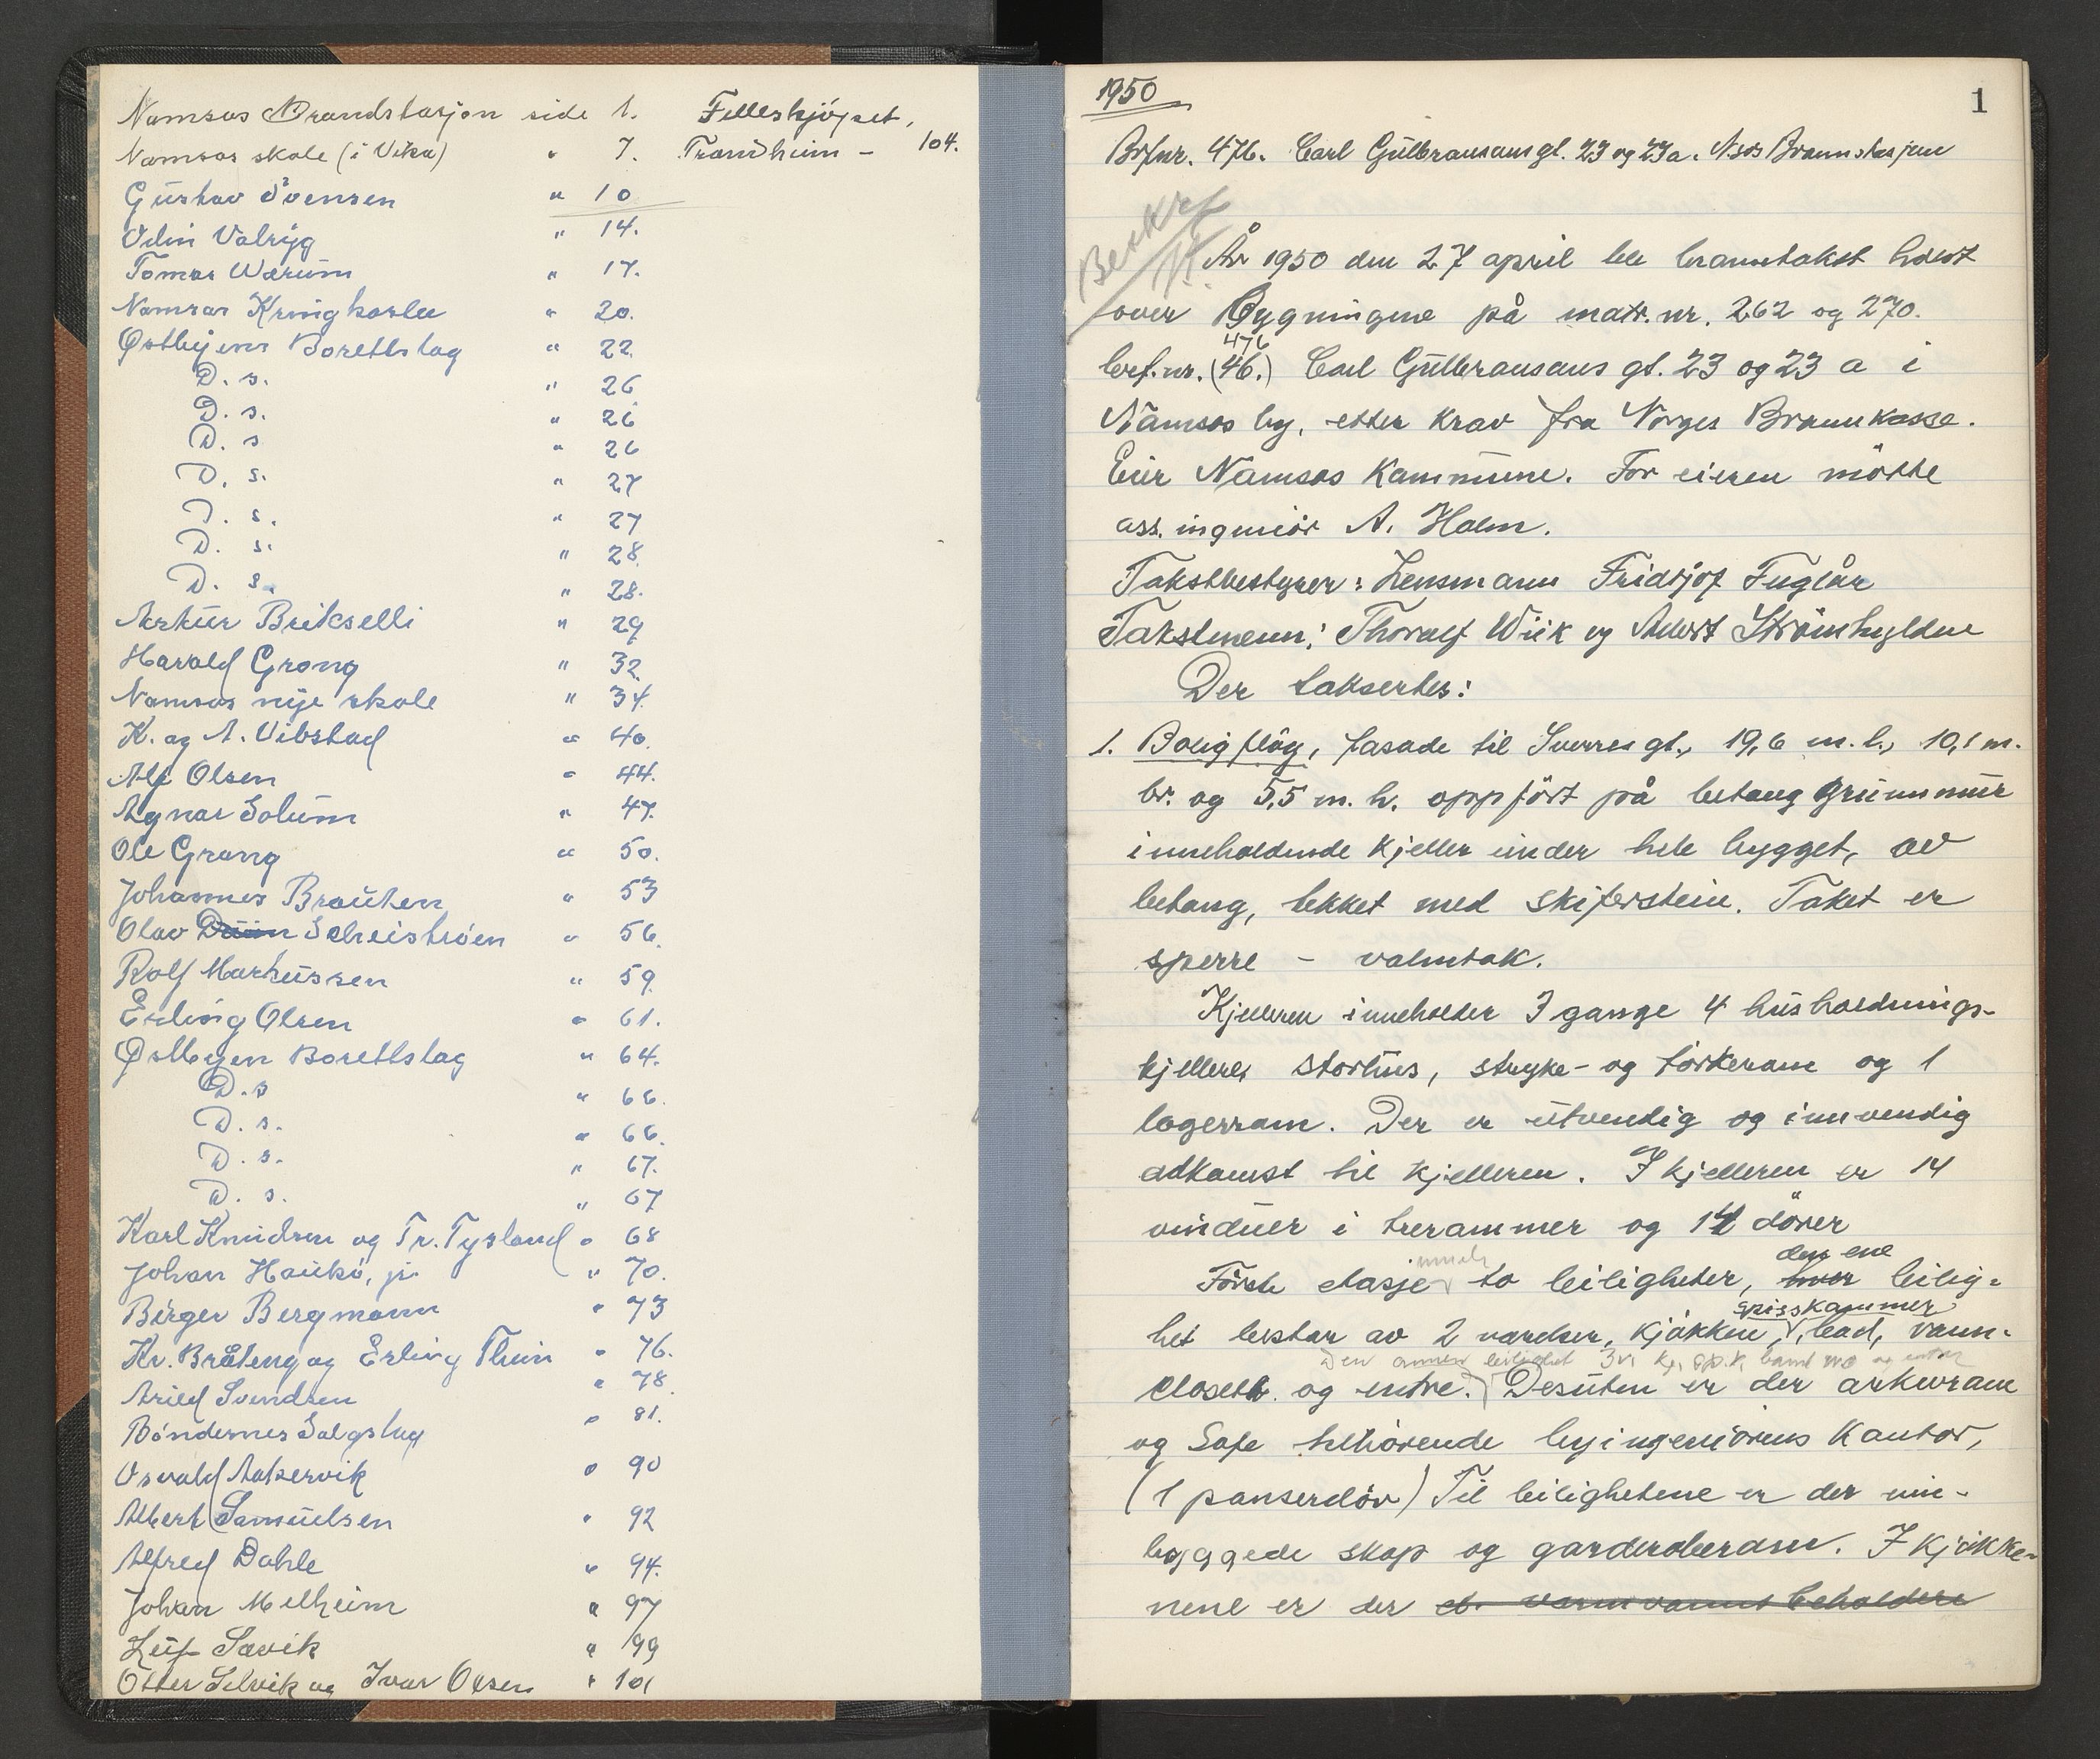 Namsos Brandstasjon side 1.
Felleskjöpet,
Namsos skole (i Vika) " 7.
Trondheim - 104.
Gustav Svensen " 10
Odin Valryg " 14.
Tomas Wærum " 17.
Namsos Kringkaster " 20.
Østbyens Borettslag " 22.
D. s. " 26
D. s. " 26
D. s " 26
D. s. " 27
D. s. " 27
D. s. " 28
D. s. " 28.
Artur Brikselli " 29
Harald Grong " 32
Namsos nye skole " 34.
K. og A. Vibstad " 40.
Alf Olsen " 44.
Agnar Solum " 47.
Ole Grong " 50.
Johannes Brauten " 53
Olav Duun Scheiströen " 56.
Rolf Markussen " 59.
Erling Olsen " 61.
Østbyen Borettslag " 64.
D. s " 66.
D. s. " 66.
D. s. " 67.
D. s. " 67
Karl Knudsen og Tr. Tysland " 68
Johan Haukö, jr. " 70.
Birger Bergmann " 73
Kr. Bråteng og Erling Thun " 76.
Arild Svendsen " 78.
Böndernes Salgslag " 81.
Osvald Aakervik " 90
Albert Samuelsen " 92
Alfred Dahle " 94.
Johan Melheim " 97
Leif Savik " 99
Otter Selvik og Ivar Olsen " 101
1950
1
Brfnr. 476. Carl Gulbransons gt. 23 og 23a. Nsos Brannstasjon
Beskrf
År 1950 den 27 april ble branntakst holdt
over Bygningene på matr. nr. 262 og 270.
476
brf. nr. (46.) Carl Gulbransons gt. 23 og 23 a i
Namsos by, etter krav fra Norges Brannkasse.
Eier Namsos Kommune. For eieren mötte
ass. ingeniör A. Holm.
Takstbestyrer: Lensmann Fridtjof Fuglår
Takstmenn: Thoralf Wiik og Albert Strömhylden
Der taksertes:
1. Boligflöy, fasade til Sverres gt., 19,6 m. l., 10,1 m.
br. og 5,5 m. h. oppfört på betong grunnmur
inneholdende kjeller under hele bygget, av
betong, tekket med skiferstein. Taket er
sperre - valmtak.
Kjelleren inneholder 3 gange 4 husholdnings-
kjellere, storhus, stryke- og törkerom og 1
lagerrom. Der er utvendig og innvendig
adkomst til kjelleren. I kjelleren er 14
vinduer i trerammer og 14 dörer
inneh
den ene
Förste etasje to leiligheter, hver leilig-
spisskammer
het bestar av 2 værelser, kjökken, bad, vann-
Den annen leilighet 3 v, kj, sp.k, bad wc og entre
closett og entre. Desuten er der arkivrom
og Safe tilhörende byingeniörens kontor,
(1 panserdör) Til leilighetene er der inn-
byggede skap og garderoberom. I kjökke-
nene er der et varmvanns beholdere